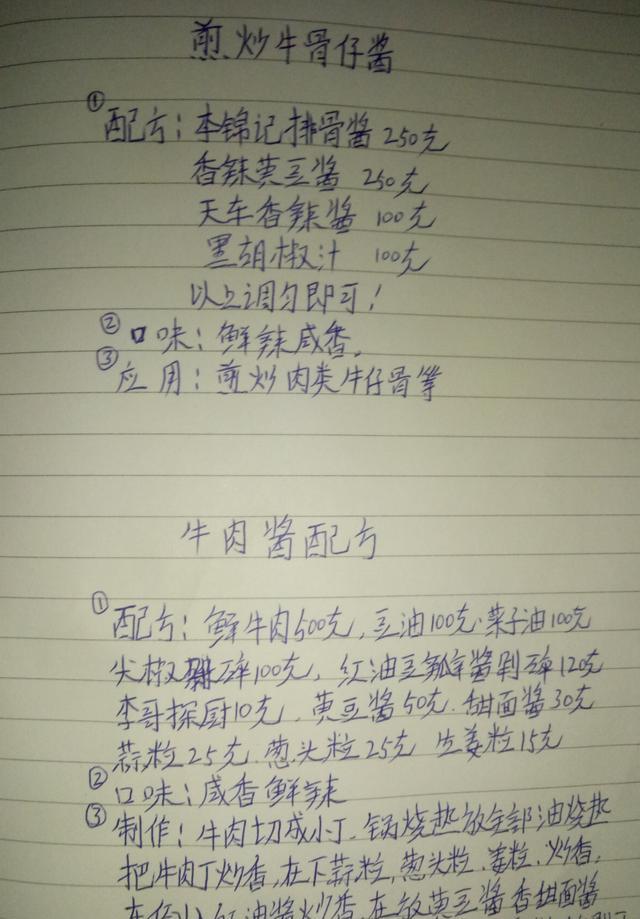 煎炒牛骨仔酱
① 配方：本锦记排骨酱 250克
香辣黄豆酱 250克
天车香辣酱 100克
黑胡椒汁 100克
以上调匀即可！
② 口味：鲜辣咸香。
③ 应用：煎炒肉类牛仔骨等
牛肉酱配方
① 配方：鲜牛肉500克，豆油100克·菜子油100克
尖椒碎100克，红油豆瓣酱剁碎120克
李哥探厨10克，黄豆酱50克．甜面酱30克
蒜粒25克．葱头粒25克 生姜粒15克
② 口味：咸香鲜辣
③ 制作：牛肉切成小丁．锅烧热放全部油烧热
把牛肉丁炒香，在下蒜粒，葱头粒．姜粒．炒香，
红油酱炒香，在放黄豆酱香甜面酱